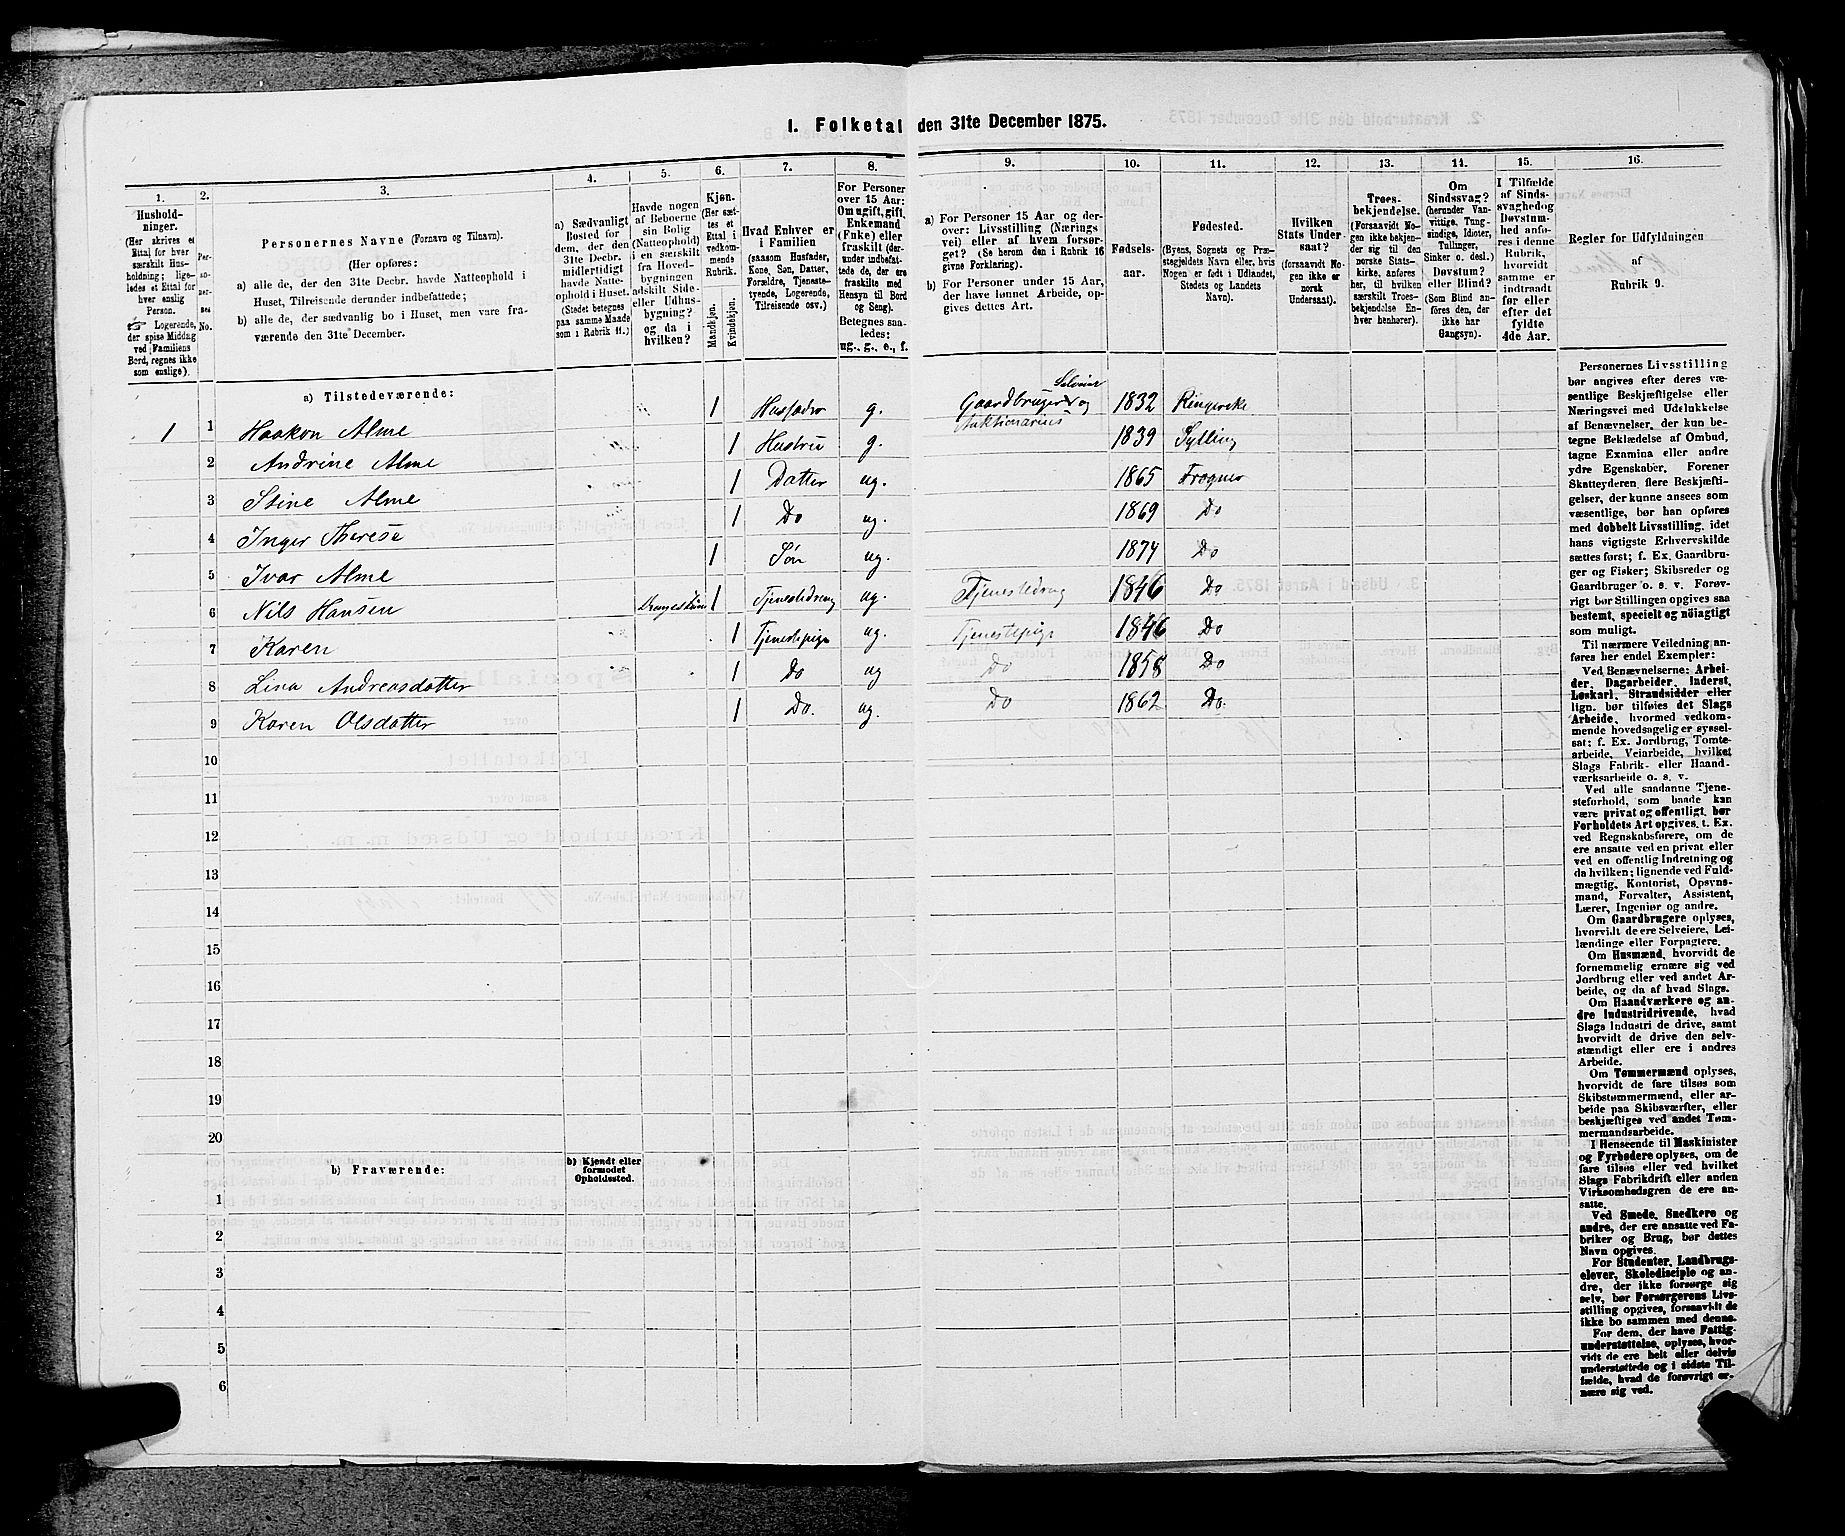 I. Folketal den 31te December 1875.
1. 2. 3. 4. 5. 6. 7. 8. 9. 10. 11. 12. 13. 14. 15. 16.
Hushold-
ninger.
(Her skrives et
Ettal for hver
særskilt Hus-
holdning; lige-
ledes et Ettal for
hver enslig
Person.
☞ Logerende,
der spise Middag
ved Familiens
Bord, regnes ikke
som enslige).
Per-
so-
ner-
nes
No.
Personernes Navne (Fornavn og Tilnavn).
(Her opføres:
a) alle de, der den 31te Decbr. havde Natteophold i
Huset, Tilreisende derunder indbefattede;
b) alle de, der sædvanlig bo i Huset, men vare fra-
værende den 31te December.
a) Sædvanligt
Bosted for
dem, der den
31te Decbr.
midlertidigt
havde Natte-
ophold i Huset.
(Stedet betegnes
paa samme Maade
som i Rubrik 11.)
Havde nogen
af Beboerne
sin Bolig
(Natteophold)
i en særskilt
fra Hoved-
bygningen
adskilt Side-
eller Udhus-
bygning?
og da i
hvilken?
Kjøn.
(Her sæt-
tes et
Ettal i
vedkom-
mende
Rubrik.
Mandkjøn.
Kvindekjøn.
Hvad Enhver er
i Familien
(saasom Husfader,
Kone, Søn, Datter,
Forældre, Tjeneste-
tyende, Logerende,
Tilreisende osv.)
For Personer
over 15 Aar:
Om ugift, gift,
Enkemand
(Enke) eller
fraskilt (der-
under indbefat-
tede de, der ere
fraskilte med
Hensyn til Bord
og Seng).
Betegnes saa-
ledes:
ug., g., e., f.
a) For Personer 15 Aar og der-
over: Livsstilling (Nærings
vei) eller af hvem forsør-
get? (Se herom den i Rubrik 16
givne Forklaring).
b) For Personer under 15 Aar,
der have lønnet Arbeide, op-
gives dettes Art.
Fødsels-
aar.
Fødested.
(Byens, Sognets og Præ-
stegjeldets Navn eller, hvis
Nogen er født i Udlandet,
Stedets og Landets
Navn).
Hvilken
Stats Under
saat?
(forsaavidt No-
gen ikke er
norsk
Undersaat).
Troes-
bekjendelse.
(Forsaavidt No-
gen ikke bekjen-
der sig til den
norske Stats-
kirke, anføres
her, til hvilken
særskilt Troes-
bekjendelse En-
hver henhører).
Om
Sindssvag?
(herunder Van-
vittige, Tung-
sindige, Idioter,
Tullinger,
Sinker o. desl.)
Døvstum?
eller Blind?
(Som Blind an-
føres den, der
ikke har
Gangsyn).
I Tilfælde
af Sinds-
svaghed og
Døvstum-
hed anfø-
res i denne
Rubrik,
hvorvidt
samme er
indtraadt
før eller
efter det
fyldte
4de Aar.
Regler for Udfyldningen
af
Rubrik 9.
a) Tilstedeværende:
1 1 Haakon Alme 1 Husfader g. Gaardbruger Selveier og Auktionarius 1832 Ringerike
2 Andrine Alme 1 Hustru g. 1839 Sylling
3 Stine Alme 1 Datter ug. 1865 Frogner
4 Inger Therese 1 Do ug. 1869 Do
5 Ivar Alme 1 Søn ug. 1874 Do
6 Nils Hansen 1 Tjenestedreng ug. Tjenestedreng 1846 Do
7 Karen 1 Tjenestepige ug. Tjenestepige 1846 Do
8 Lina Andreasdatter 1 Do ug Do 1858 Do
9 Karen Olsdatter 1 Do. ug. Do 1862 Do.
10
11
12
13
14
15
16
17
18
19
20
b) Fraværende:
b) Kjendt eller
formodet
Opholdssted.
1
2
3
4
5
6
Personernes Livsstilling
bør angives efter deres væ-
sentlige Beskjæftigelse eller
Næringsvei med Udelukkelse
af Benævnelser, der kun be-
tegne Beklædelse af Ombud,
tagne Examina eller andre
ydre Egenskaber. Forener
Skatteyderen flere Beskjæfti-
gelser, der kunne ansees som
væsentlige, bør han opføres
med dobbelt Livsstilling, idet
hans vigtigste Erhvervskilde
sættes først; f. Ex. Gaardbru-
ger og Fisker; Skibsreder og
Gaardbruger o. s. v. Forøv-
rigt bør Stillingen opgives saa
bestemt, specielt og nöiagtigt
som muligt.
Til nærmere Veiledning an-
føres her endel Exempler:
Ved Benævnelserne: Arbei-
der, Dagarbeider, Inderst,
Løskarl, Strandsidder eller
lign. bør tilføies det Slags
Arbeide, hvormed vedkom-
mende hovedsagelig er syssel-
sat; f. Ex. Jordbrug, Tomte-
arbeide, Veiarbeide, hvilket
Slags Fabrik- eller Haand-
værksarbeide o. s. v.
Ved alle saadanne Tjene-
steforhold, som baade kan
være privat og offentligt, bør
Forholdets Art opgives, t. Ex.
ved Regnskabsførere, om de
ere ansatte ved en privat eller
ved en offentlig Indretning og
da hvilken; lignende ved Fuld-
mægtig, Kontorist, Opsyns-
mand, Forvalter, Assistent,
Lærer, Ingeniør og andre.
Om Gaardbrugere oplyses,
hvorvidt de ere Selveiere, Lei-
lændinge eller Forpagtere.
Om Husmænd, hvorvidt de
fornemmelig ernære sig ved
Jordbrug eller ved andet Ar-
beide, og da af hvad Slags.
Om Haandværkere og an-
dre Industridrivende, hvad
Slags Industri de drive, samt
hvorvidt de drive den selv-
stændigt eller ere i andres
Arbeide.
Om Tømmermænd oplyses,
hvorvidt de fare tilsøs som
Skibstømmermænd, eller ar-
beide paa Skibsværfter, eller
beskjæftiges ved andet Tøm-
mermandsarbeide.
I Henseende til Maskinister
og Fyrbødere oplyses, om de
fare tilsøs eller ved hvilket
Slags Fabrikdrift eller anden
Virksomhedsgren de ere an-
satte.
Ved Smede, Snedkere og
andre, der ere ansatte ved Fa-
briker og Brug, bør dettes
Navn opgives.
For Studenter, Landbrugs-
elever, Skoledisciple og an-
dre, der ikke forsørge sig
selv, bør Forsørgerens Livs-
stilling opgives, forsaavidt de
ikke bo sammen med denne.
For dem, der have Fattig-
understøttelse, oplyses, hvor-
vidt de ere helt eller delvis
understøttede og i sidste Til-
fælde, hvad de forøvrigt er-
nære sig ved.